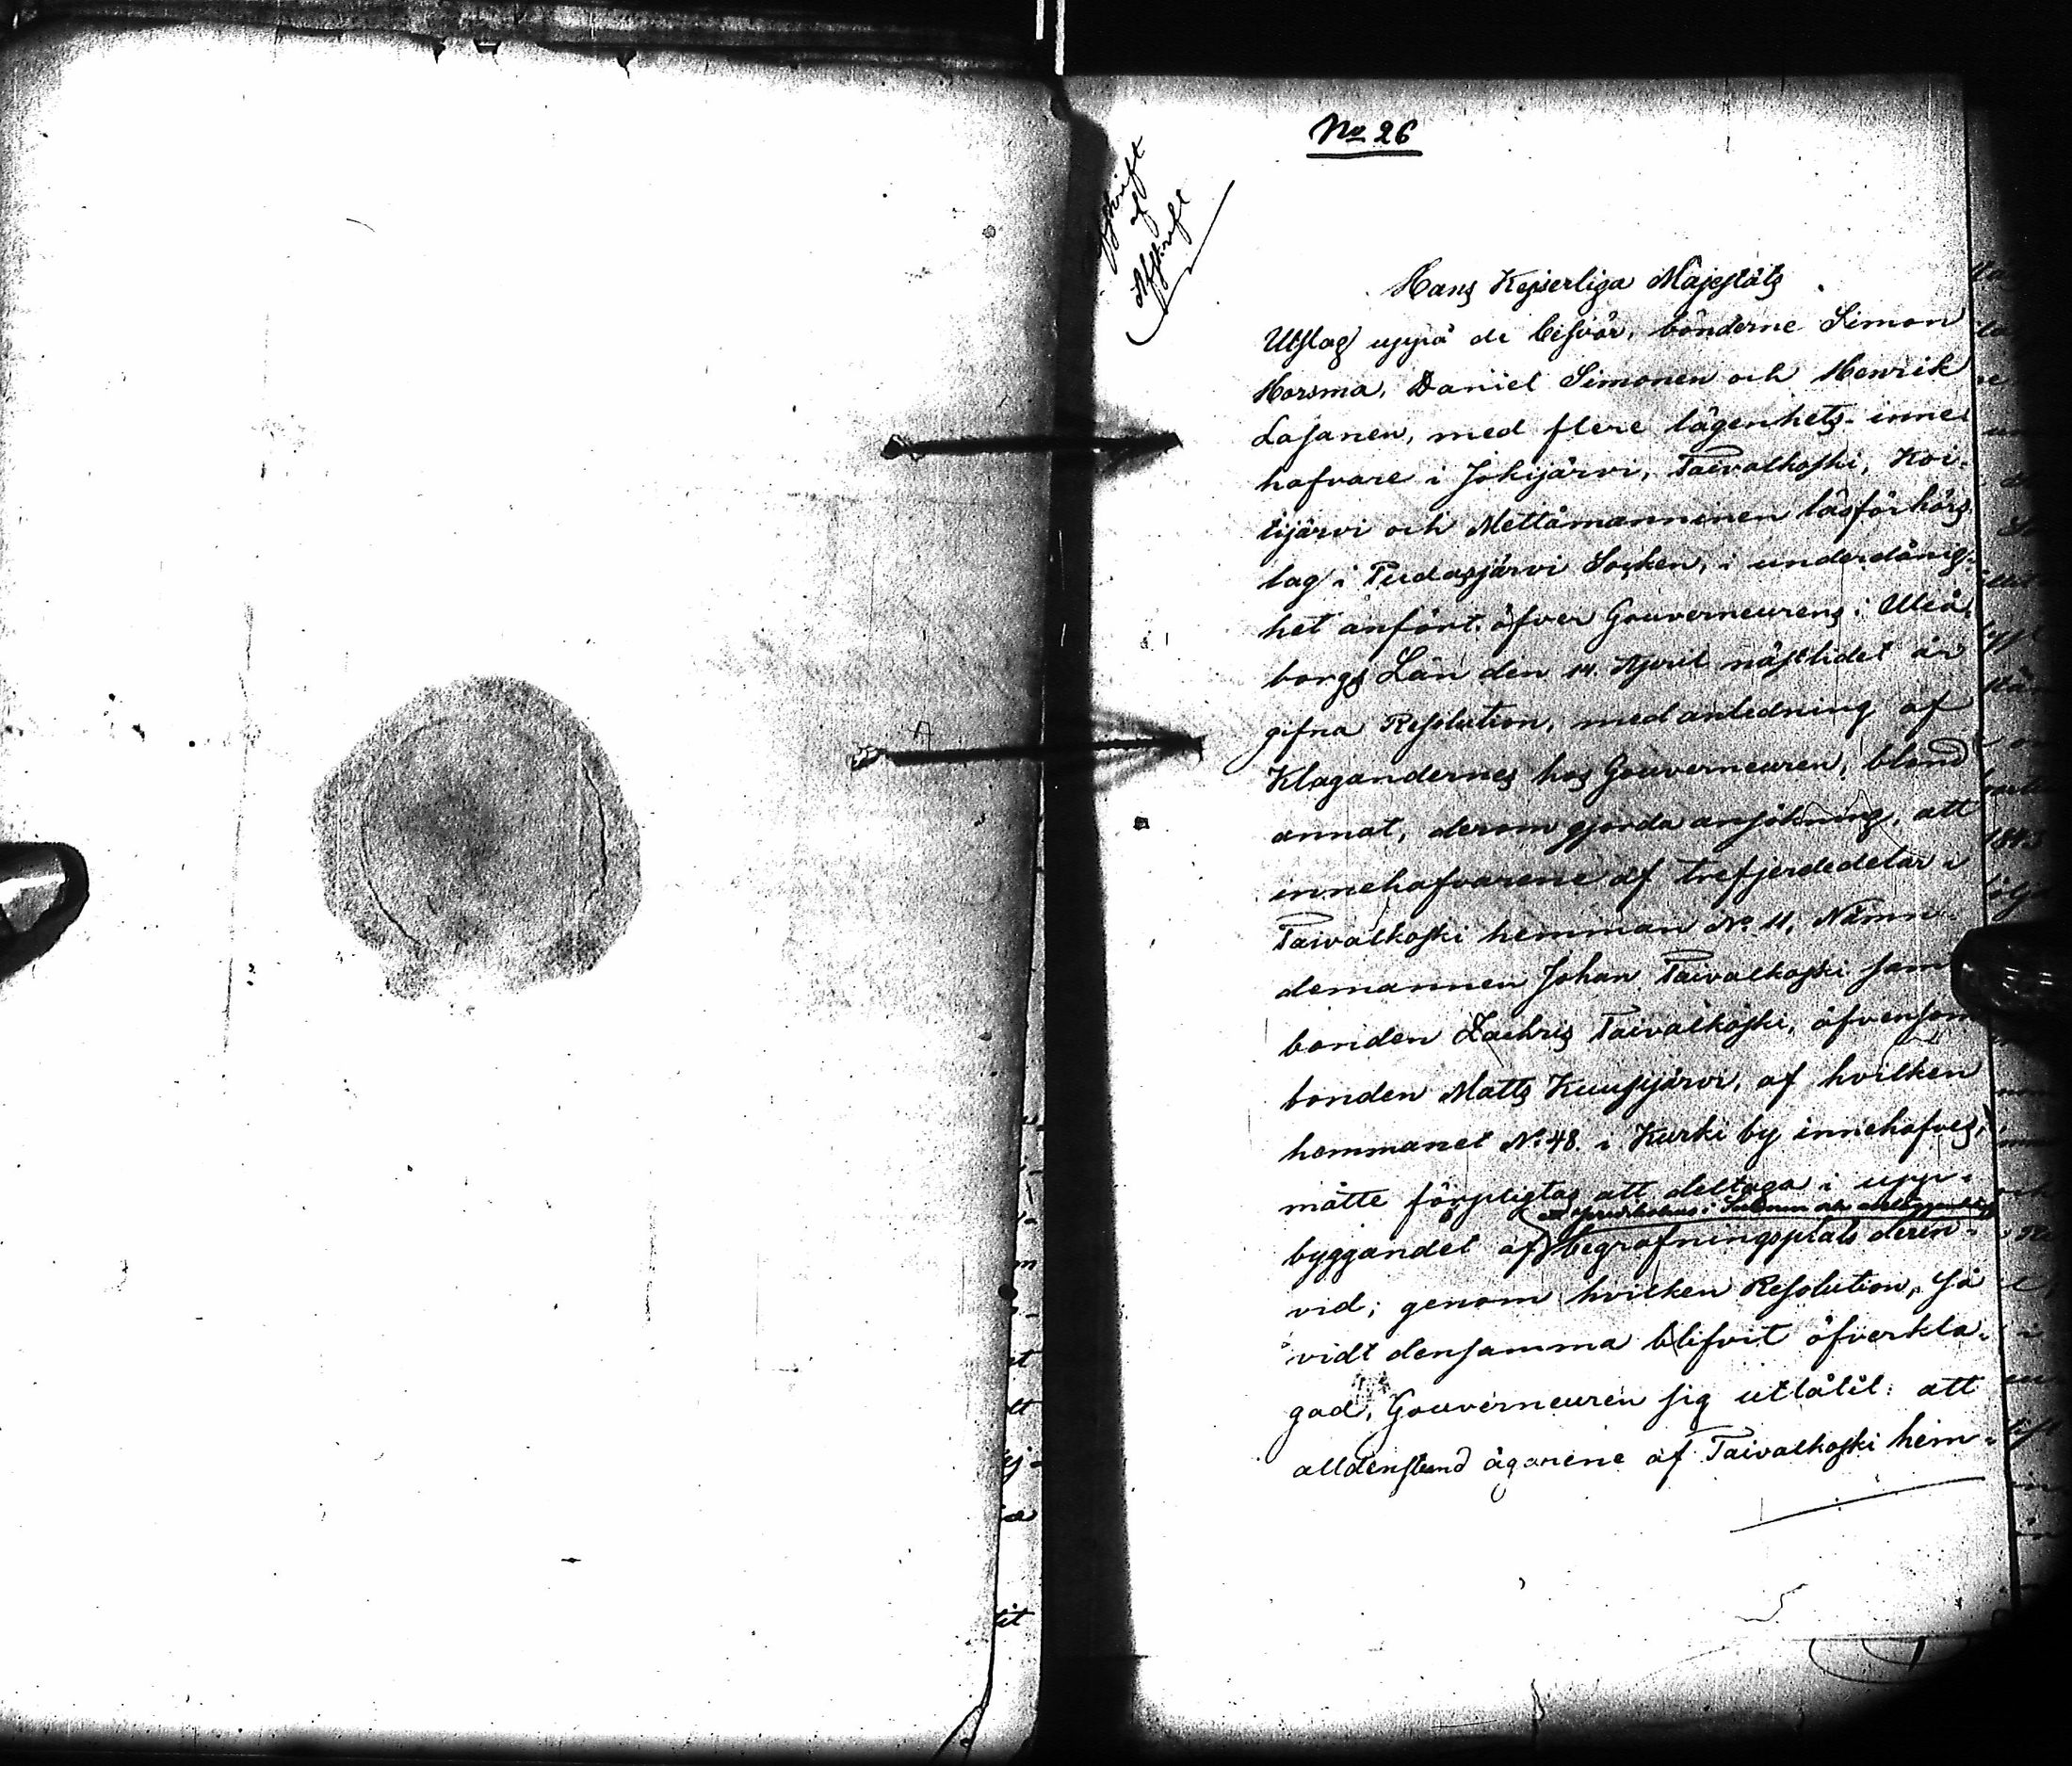 No 26
Afskrift
af
Afskrift
Hans Kejserliga Majestäts
Utslag uppå de besvär, bönderne Simon
Horsma, Daniel Simonen och Henrik
Lasanen, med flere lägenhets-inne-
hafvare i Jokijärvi, Taivalkoski, Koi-
tijärvi och Mettämanninen läsförhörs-
lag i Pudasjärvi Socken, i underdånig-
het anfört öfver Gouverneurens i Uleå-
borgs Län den 14 April nästlidet år
gifna Resolution, med anledning af
Klagandernes hos Gouverneuren, bland
annat, derom gjorda ansökning, att
innehafvarene af trefjerdedelar i
Taivalkoski hemman No 11, Nämn-
demannen Johan Taivalkoski samt
bonden Zachris Taivalkoski, äfvensom
bonden Matts Kuusijärvi, af hvilken
hemmanet No 48 i Kurki by innehafves,
måtte förpligtas att deltaga i upp-
byggandet af begrafningsplats derin-
vid; genom hvilken Resolution, så
vidt densamma blifvit öfverkla-
gad, Gouverneuren sig utlåtit: att
alldenstund ägarene af Taivalkoski hem-